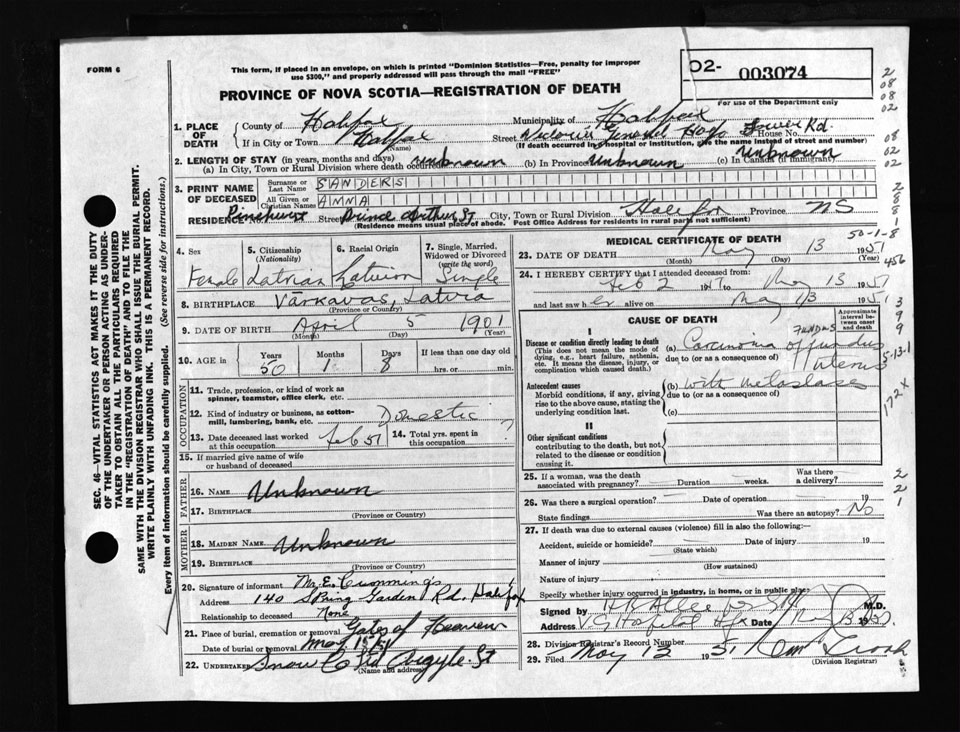 FORM 6
This form, if placed in an envelope, on which is printed "Dominion Statistics—Free, penalty for improper
use $300," and properly addressed will pass through the mail "FREE"
PROVINCE OF NOVA SCOTIA—REGISTRATION OF DEATH
02- 003074
For use of the Department only
SEC. 46—VITAL STATISTICS ACT MAKES IT THE DUTY
OF THE UNDERTAKER OR PERSON ACTING AS UNDER-
TAKER TO OBTAIN ALL THE PARTICULARS REQUIRED
IN THE "REGISTRATION OF DEATH" AND TO FILE THE
SAME WITH THE DIVISION REGISTRAR WHO SHALL ISSUE THE BURIAL PERMIT.
WRITE PLAINLY WITH UNFADING INK. THIS IS A PERMANENT RECORD.
Every item of information should be carefully supplied. (See reverse side for instructions.)
1. PLACE OF DEATH County of Halifax Municipality of Halifax
If in City or Town Halifax (Name) Street Victoria General Hosp Tower Rd. House No.
(If death occurred in hospital or institution, give the name instead of street and number)
2. LENGTH OF STAY (in years, months and days)
(a) In City, Town or Rural Division where death occurred unknown (b) In Province Unknown (c) In Canada (if immigrant) Unknown
3. PRINT NAME OF DECEASED Surname or Last Name SANDERS
All Given or Christian Names ANNA
RESIDENCE No. Pinehurst Street Prince Arthur St City, Town or Rural Division Halifax Province NS
(Residence means usual place of abode. Post Office Address for residents in rural parts not sufficient)
4. Sex Female
5. Citizenship (Nationality) Latvian
6. Racial Origin
7. Single, Married, Widowed or Divorced (write the word) Single
8. BIRTHPLACE Varkavas, Latvia
(Province or Country)
9. DATE OF BIRTH April 5 1901
(Month) (Day) (Year)
10. AGE in Years 50 Months 1 Days 8 If less than one day old hrs. or min.
OCCUPATION
11. Trade, profession, or kind of work as spinner, teamster, office clerk, etc.
12. Kind of industry or business, as cotton-mill, lumbering, bank, etc. Domestic
13. Date deceased last worked at this occupation Feb 51 14. Total yrs. spent in this occupation
15. If married give name of wife or husband of deceased
FATHER
16. NAME Unknown
17. BIRTHPLACE (Province or Country)
MOTHER
18. MAIDEN NAME Unknown
19. BIRTHPLACE (Province or Country)
20. Signature of informant E. Cummings
Address 140 Spring Garden Rd. Halifax
Relationship to deceased None
21. Place of burial, cremation or removal Gates of Heaven
Date of burial or removal May 15/51
22. UNDERTAKER Snow Co Ltd Argyle St
(Name and address)
MEDICAL CERTIFICATE OF DEATH
50-1-8
23. DATE OF DEATH May 13 1951
(Month) (Day) (Year)
24. I HEREBY CERTIFY that I attended deceased from:
Feb 2 to May 13 1951
and last saw her on May 13 1951
CAUSE OF DEATH
Approximate interval between onset and death
I
Disease or condition directly leading to death
(This does not mean the mode of dying, e.g., heart failure, asthenia, etc. It means the disease, injury, or complication which caused death.)
FUNDUS
(a) Carcinoma of fundus
due to (or as a consequence of) Uterus
Antecedent causes
Morbid conditions, if any, giving rise to the above cause, stating the underlying condition last.
(b) with metastases
due to (or as a consequence of)
(c)
II
Other significant conditions
contributing to the death, but not related to the disease or condition causing it.
25. If a woman, was the death associated with pregnancy? Duration weeks. Was there a delivery?
26. Was there a surgical operation? Date of operation 19
State findings Was there an autopsy? No
27. If death was due to external causes (violence) fill in also the following:
Accident, suicide or homicide? Date of injury 19
(State which)
Manner of injury
(How sustained)
Nature of injury
Specify whether injury occurred in industry, in home, or in public place.
Signed by M.D.
Address V. G. Hospital Hfx Date 19
28. Division Registrar's Record Number
29. Filed May 1951
(Division Registrar)
2
08
08
02
08
02
02
2
8
8
1
456
3
9
9
5-13-1
172X
2
2
1